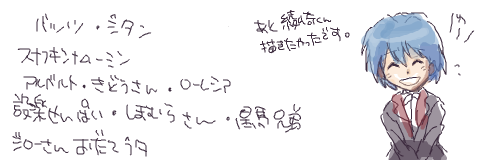 バッツ・ジタン
スナフキンナムーミン
アルベルト・きどうさん・ローレシア
せんぱい・しまむらさん・黒馬兄弟
ジローさん おだてうタ
あと綾崎くん
描きたかったです。